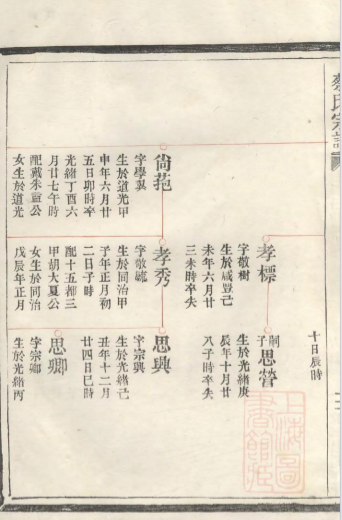 蔡氏宗譜
十日辰時
孝標
字敬樹
生於咸豐己
未年六月廿
三未時卒失
嗣子思營
生於光緒庚
辰年十月廿
八子時卒失
尙苑
字學巽
生於道光甲
申年六月廿
五日卯時卒
光緒丁酉六
月廿七午時
配戴朱靈公
女生於道光
孝秀
字敬毓
生於同治甲
子年正月初
二日子時
配十五都三
甲胡大夏公
女生於同治
戊辰年正月
思興
字宗興
生於光緒己
丑年十二月
廿四日巳時
思卿
字宗卿
生於光緒丙
上海圖
書館